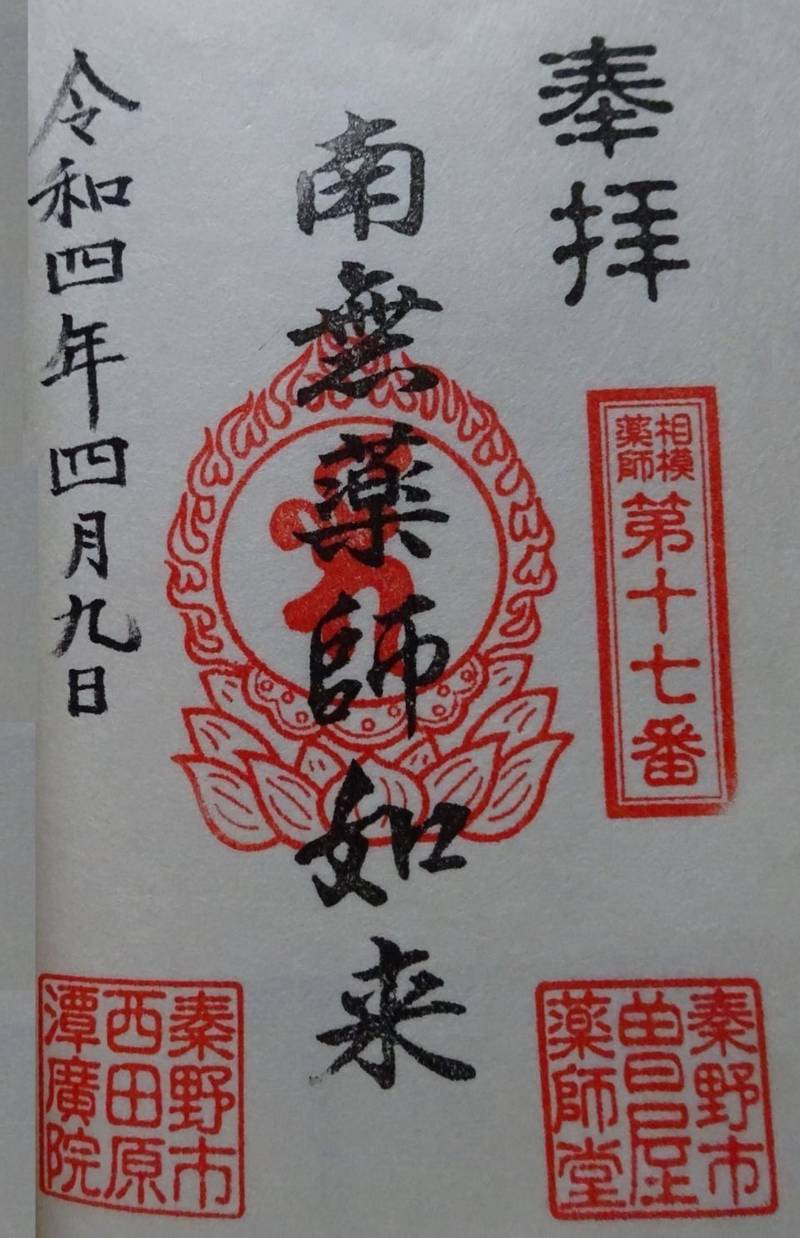 奉拝
相模
薬師
第十七番
秦野市
薬師堂
南無薬師如来
令和四年四月九日
秦野市
西田原
潭廣院